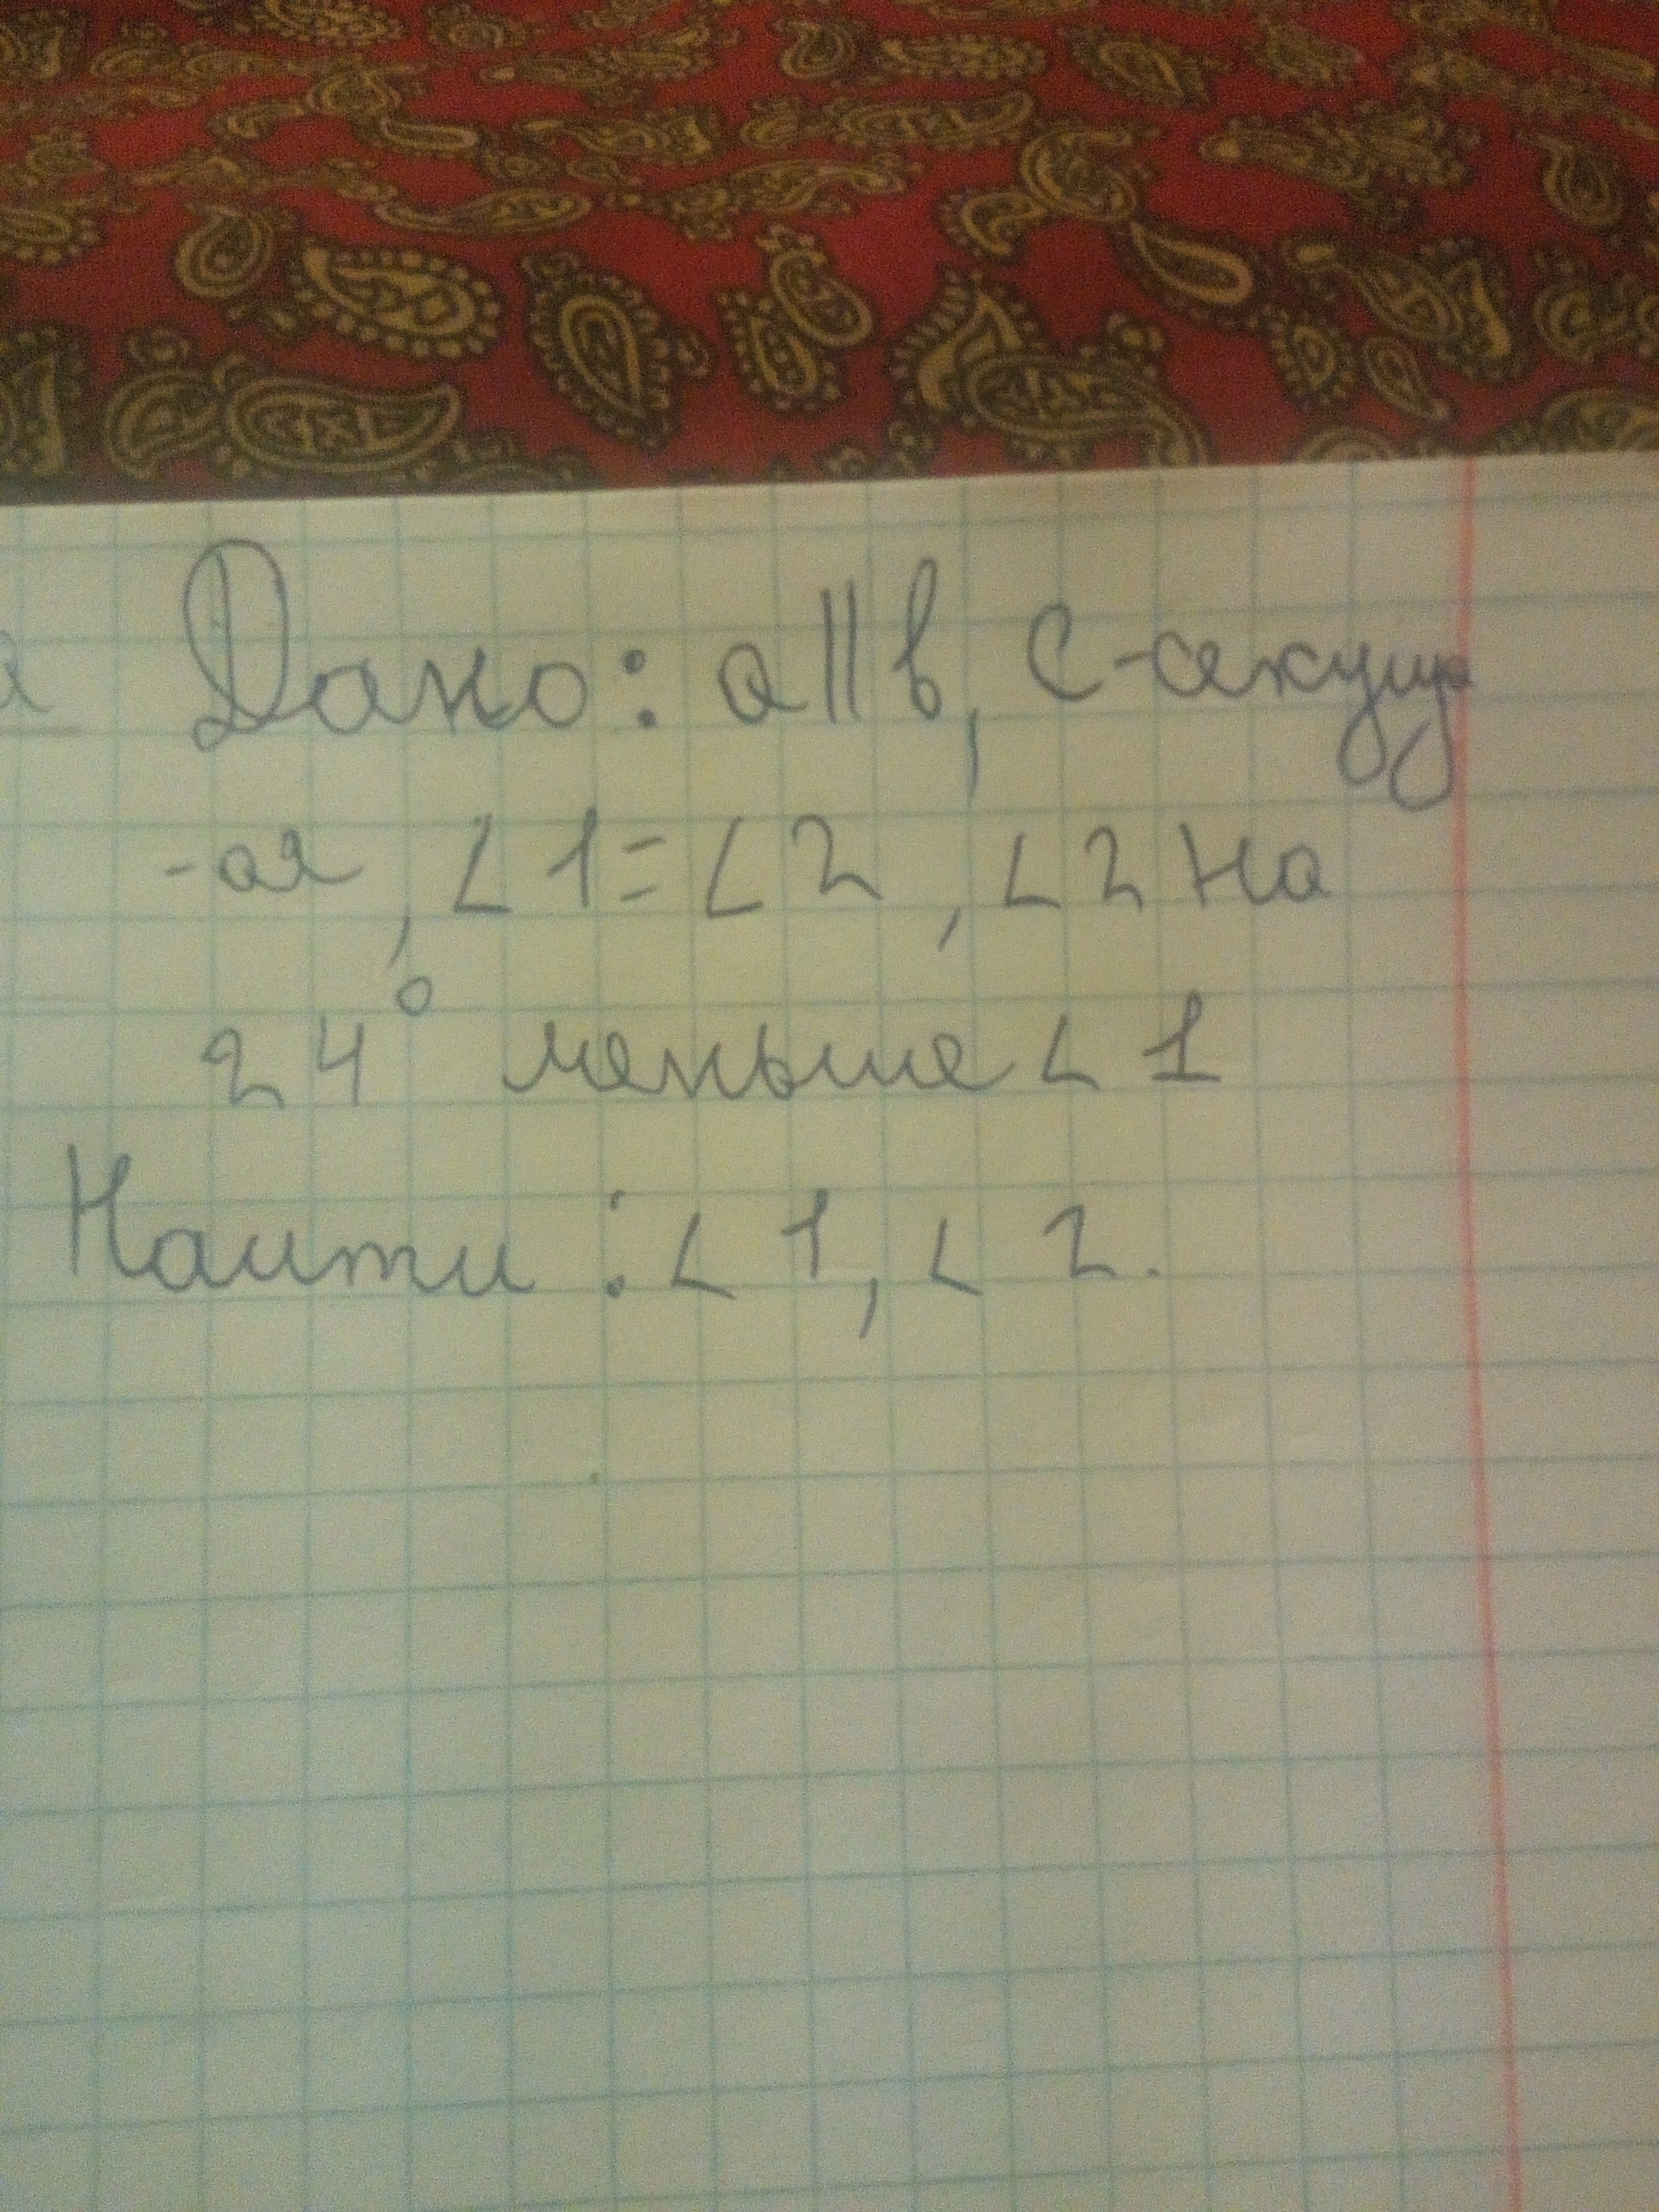 а Дано: a||b, c-секуща
-ая, ∠1=∠2, ∠2 на
24° меньше ∠1
Наити: ∠1, ∠2.